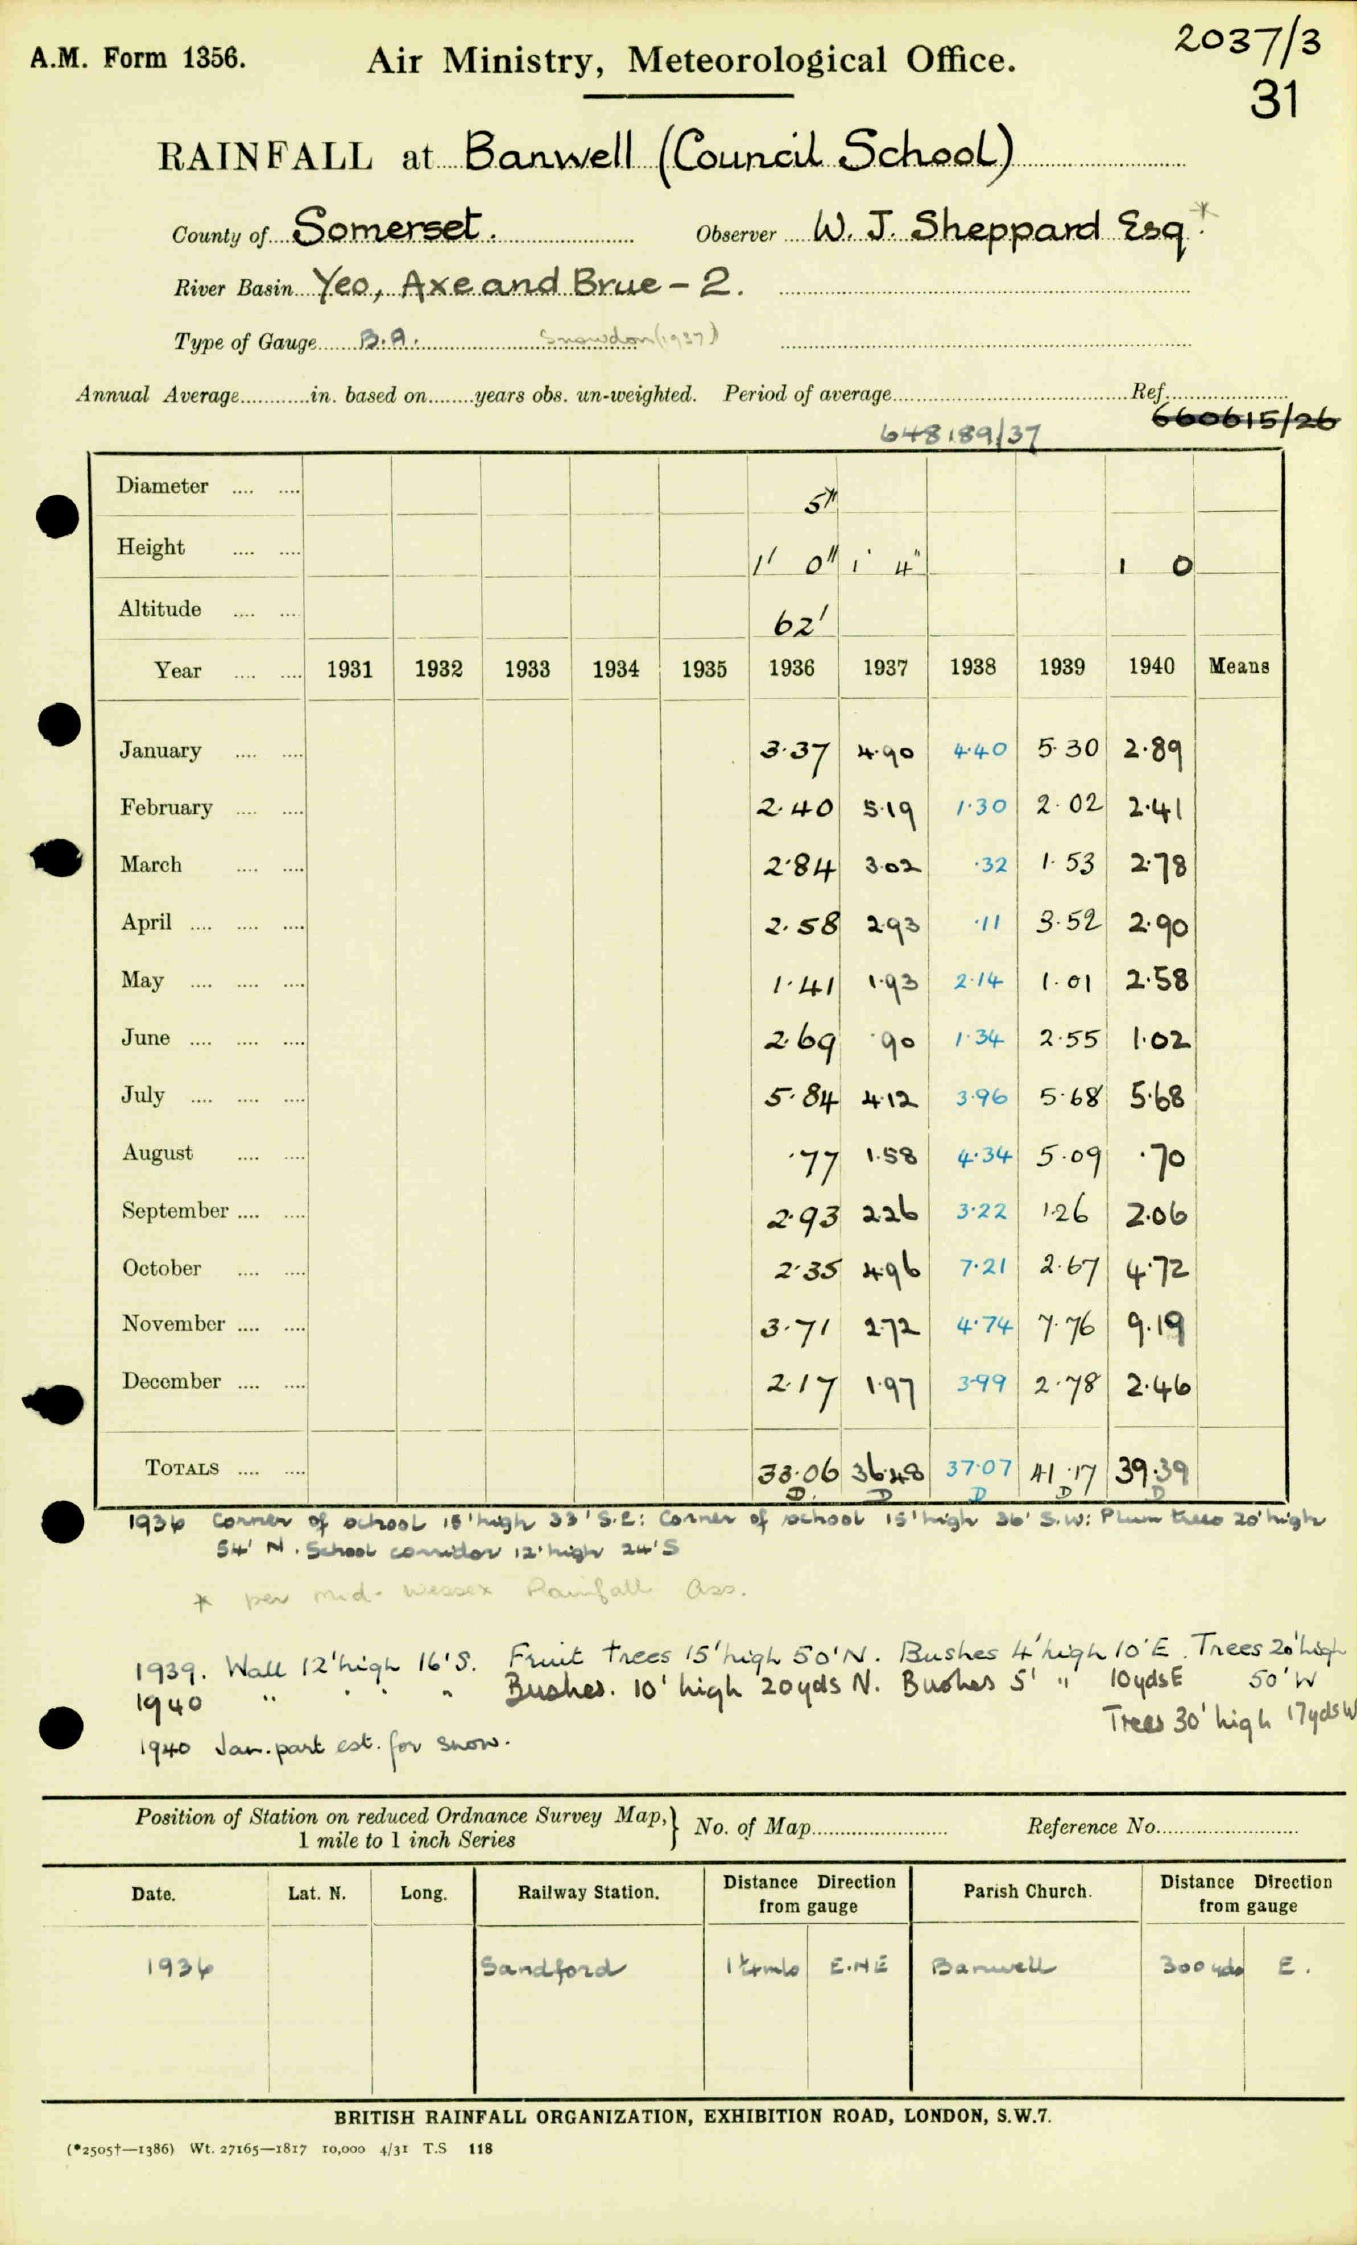 2037/3
A.M. Form 1356. Air Ministry, Meteorological Office.
31
RAINFALL at Banwell (Council School)
County of Somerset. Observer W. J. Sheppard Esq. *
River Basin Yeo, Axe and Brue - 2.
Type of Gauge B.A. Snowdon (1937)
Annual Average in. based on years obs. un-weighted. Period of average Ref.
648189/37 660615/26
Diameter 5"
Height 1' 0" 1' 4" 1 0
Altitude 62'
Year 1931 1932 1933 1934 1935 1936 1937 1938 1939 1940 Means
January 3.37 4.90 4.40 5.30 2.89
February 2.40 5.19 1.30 2.02 2.41
March 2.84 3.02 .32 1.53 2.78
April 2.58 2.93 .11 3.52 2.90
May 1.41 1.93 2.14 1.01 2.58
June 2.69 .90 1.34 2.55 1.02
July 5.84 4.12 3.96 5.68 5.68
August .77 1.58 4.34 5.09 .70
September 2.93 2.26 3.22 1.26 2.06
October 2.35 4.96 7.21 2.67 4.72
November 3.71 2.72 4.74 7.76 9.19
December 2.17 1.97 3.99 2.78 2.46
TOTALS 33.06 36.48 37.07 41.17 39.39
D. D D D D
1936 Corner of school 15' high 33' S.E: Corner of school 15' high 36' S.W: Plum trees 20' high
54' N. School corridor 12' high 24' S
* per Mid-Wessex Rainfall Ass.
1939. Wall 12' high 16' S. Fruit trees 15' high 50' N. Bushes 4' high 10' E. Trees 20' high
50' W
1940 " " " " Bushes. 10' high 20yds N. Bushes 5' " 10yds E
Trees 30' high 17yds W
1940 Jan. part est. for snow.
Position of Station on reduced Ordnance Survey Map, } No. of Map Reference No.
1 mile to 1 inch Series
Date. Lat. N. Long. Railway Station. Distance Direction from gauge Parish Church. Distance Direction from gauge
1936 Sandford 1¼ mls E.NE Banwell 300 yds E.
BRITISH RAINFALL ORGANIZATION, EXHIBITION ROAD, LONDON, S.W.7.
(*2505†—1386) Wt. 27165—1817 10,000 4/31 T.S 118